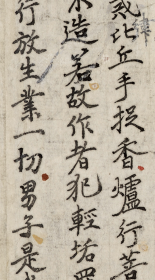 戝比丘手捉香爐行菩
不造若故作者犯輕垢罪
行放生業一切男子是